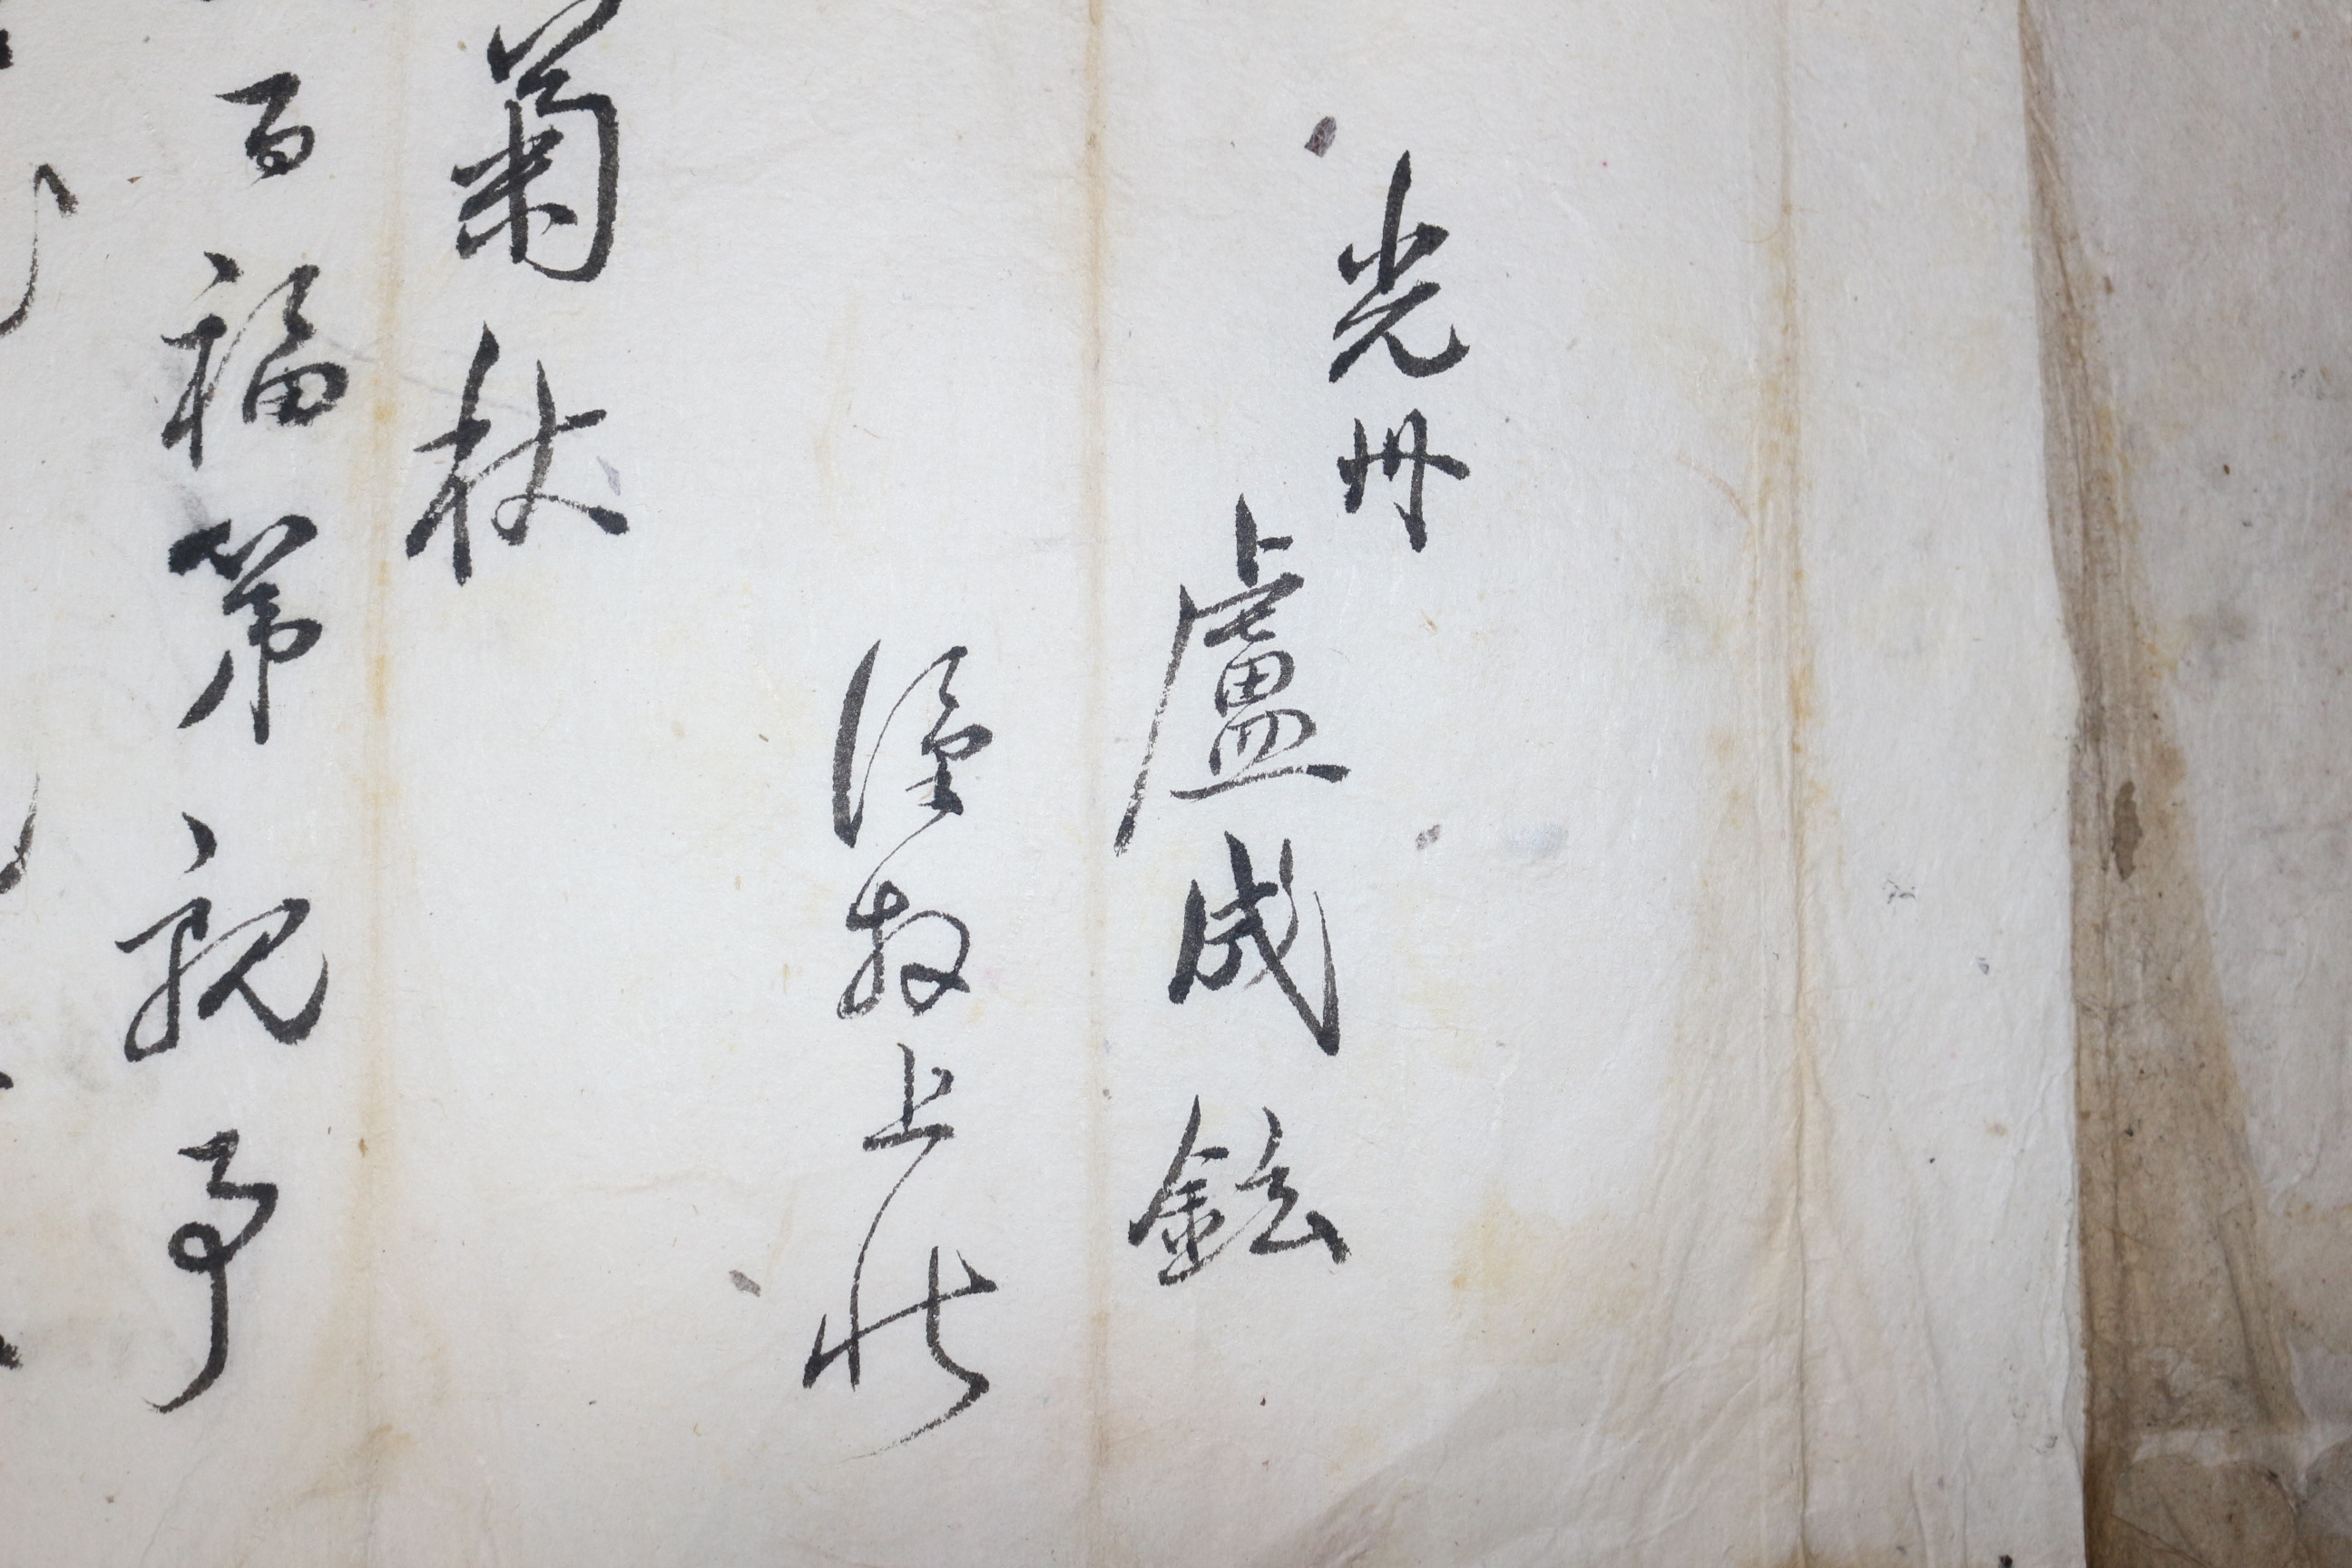 光州
盧成鉉
謹拜上狀
菊秋
百福第親事